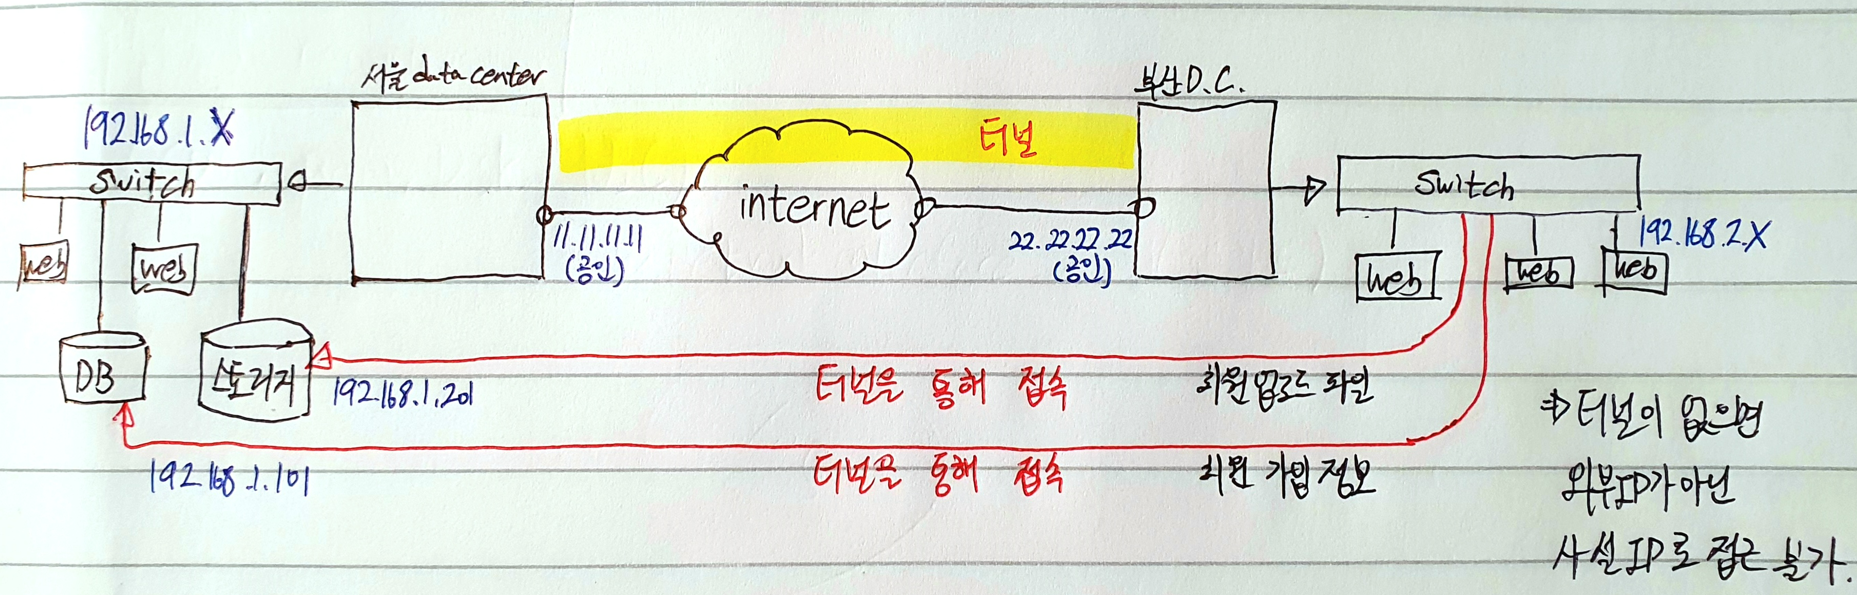 서울 data center
부산 D.C.
192.168.1.X
터널
Switch
internet
Switch
11.11.11.11
(공인)
22.22.22.22
(공인)
192.168.2.X
web
web
web
web
web
DB
스토리지
192.168.1.201
터널을 통해 접속
회원 업로드 파일
192.168.1.101
터널을 통해 접속
회원 가입 정보
⇒ 터널이 없으면
외부IP가 아닌
사설IP로 접근 불가.